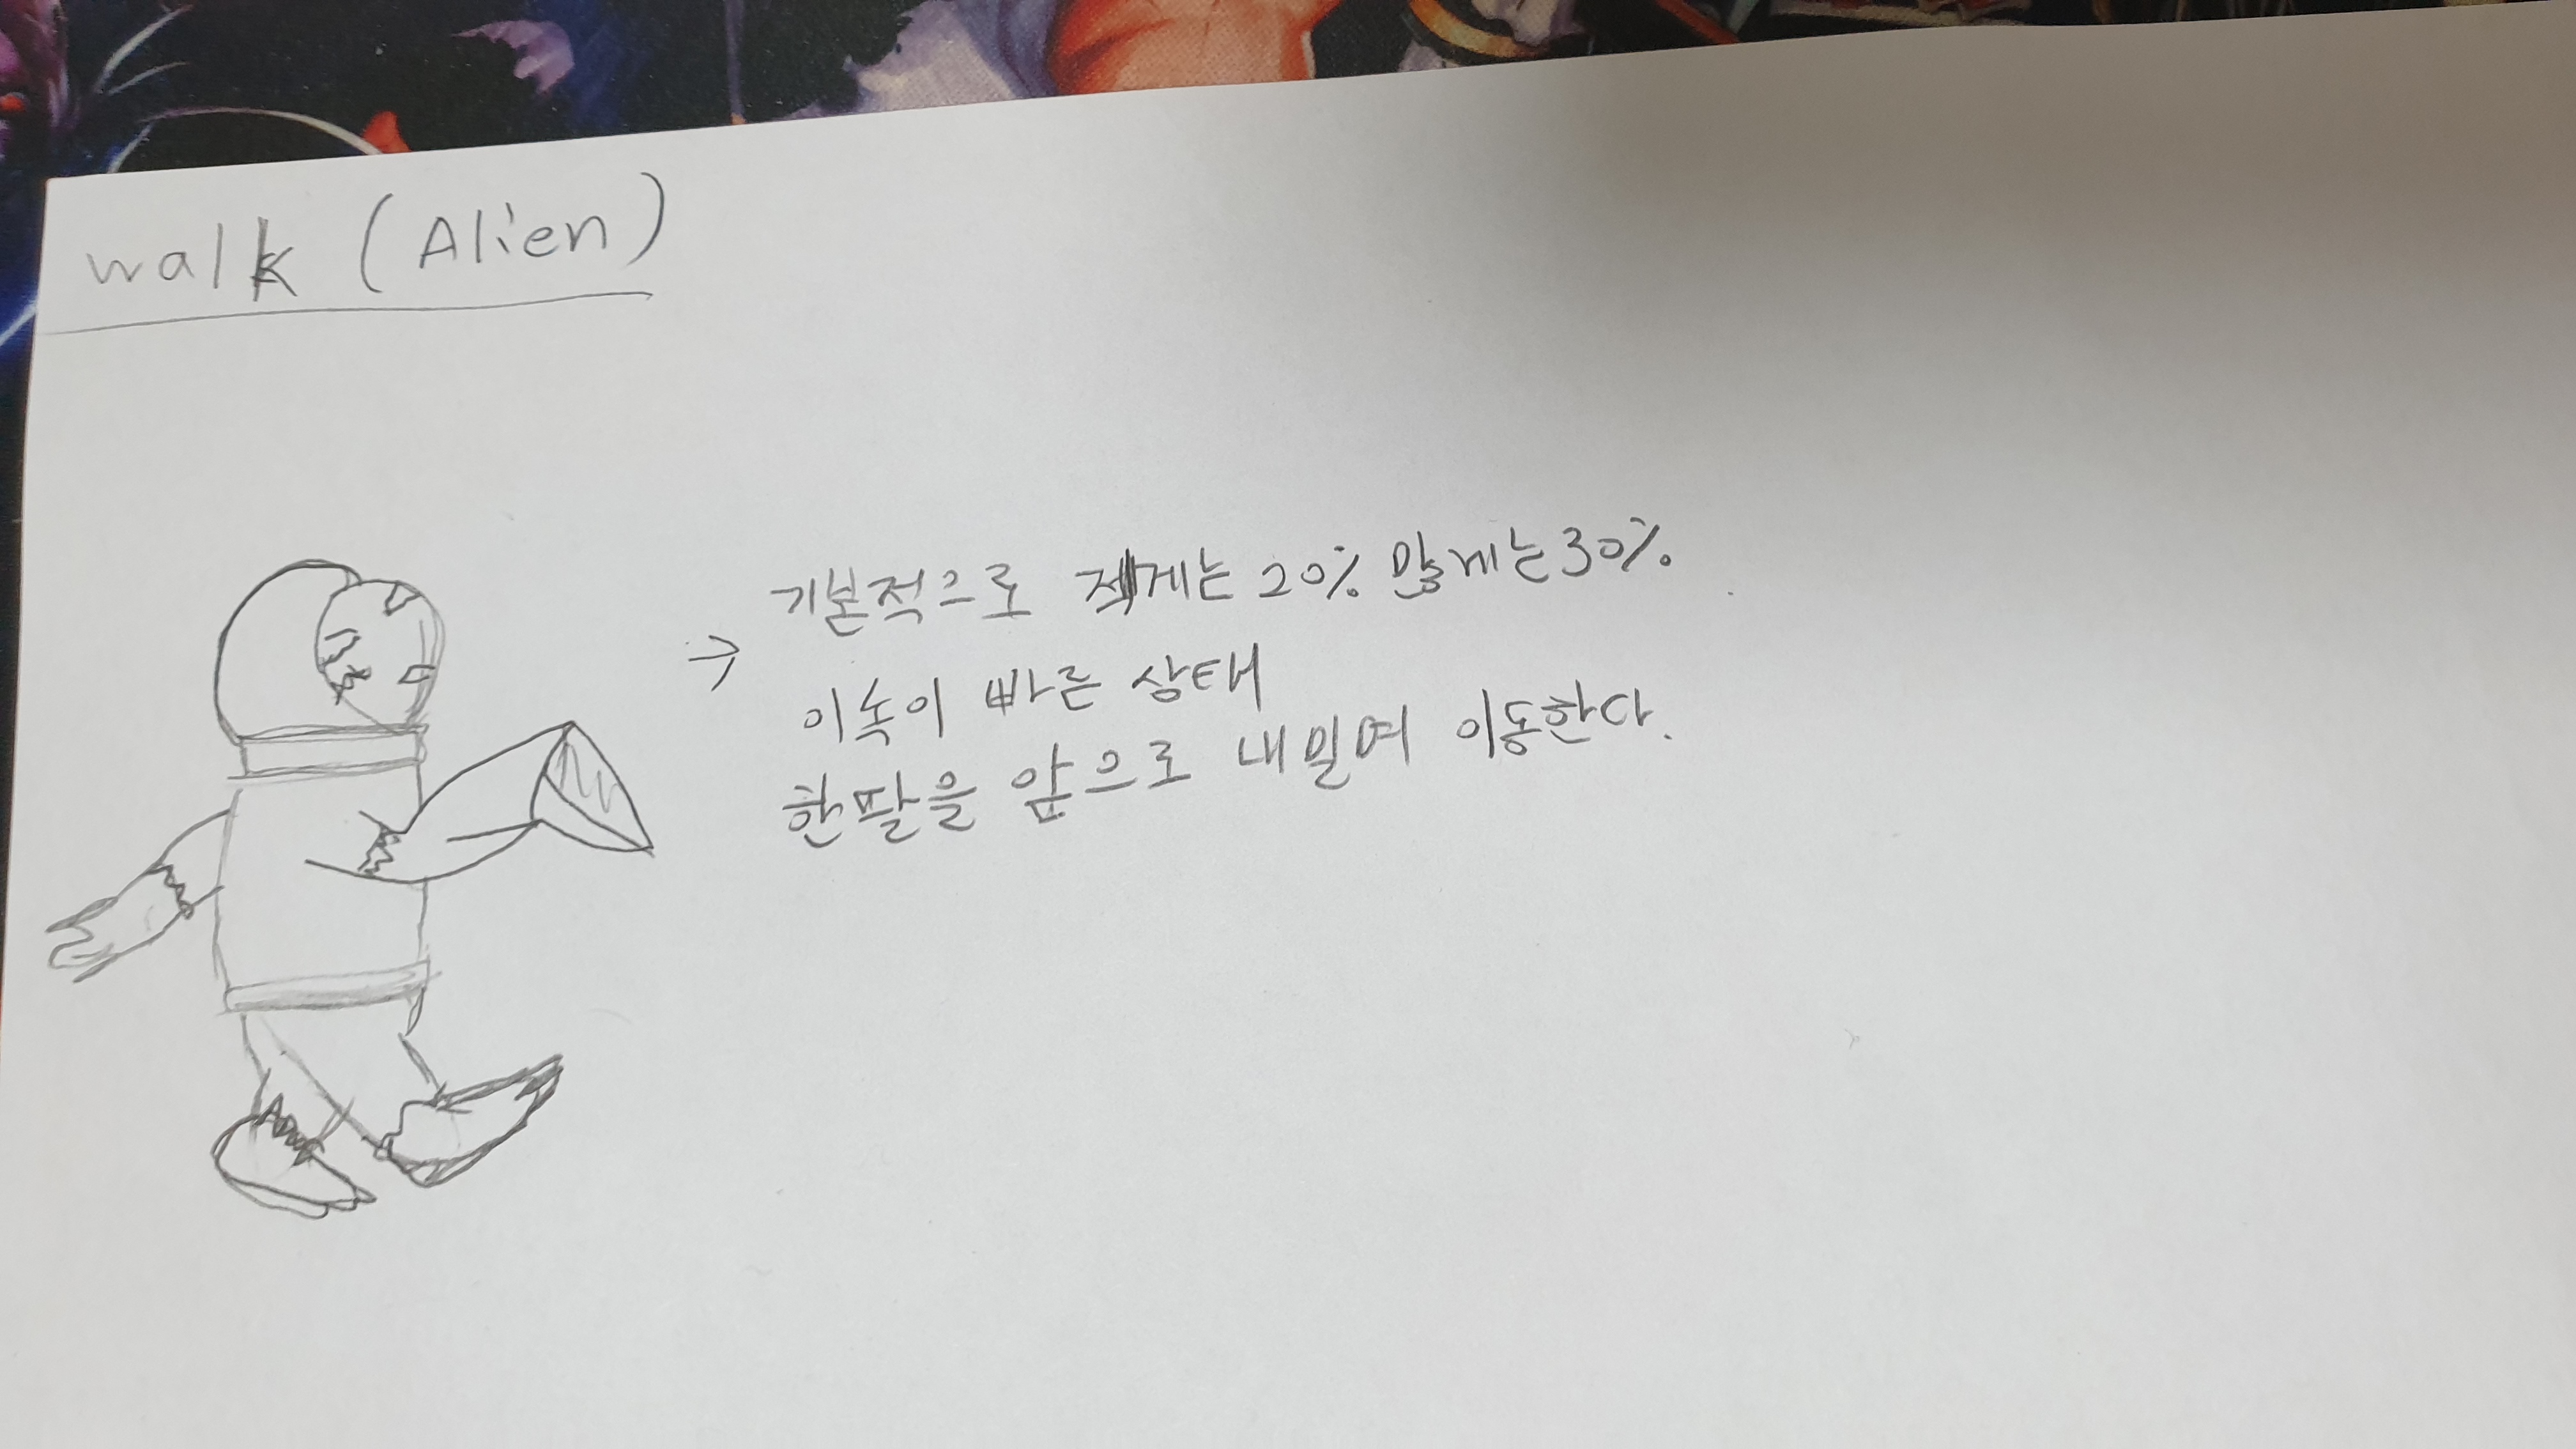 walk (Alien)
→ 기본적으로 적게는 20% 많게는 30%
이속이 빠른 상태
한팔을 앞으로 내밀며 이동한다.